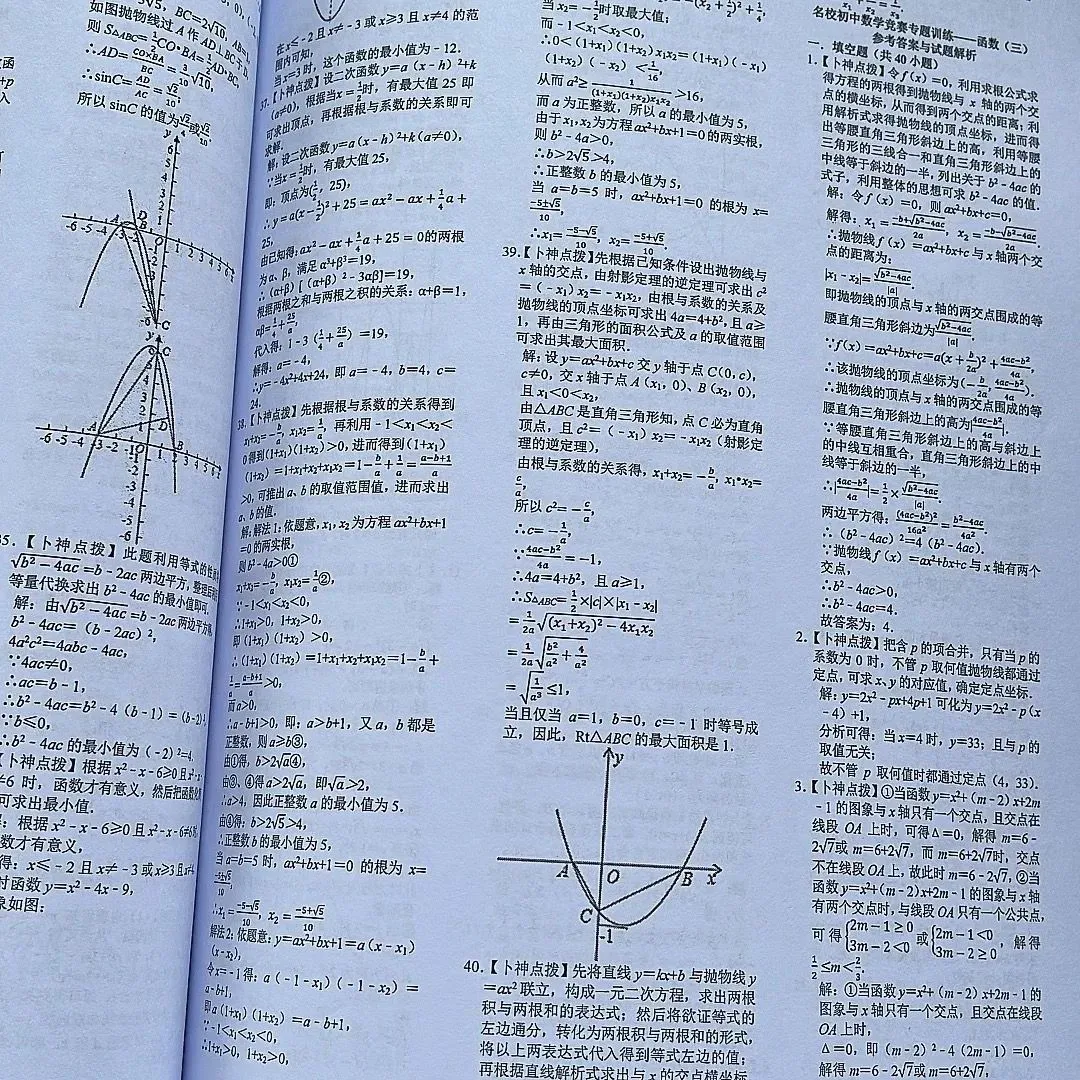 如图抛物线过A作AD⊥BC于D,
则S△ABC=½CO·BA=½AD·BC,
∴AD=
∴sinC=
所以sinC的值为
35.【卜神点拨】此题利用等式的性质
√(b²-4ac)=b-2ac两边平方，整理后
等量代换求出b²-4ac的最小值即可.
解：由√(b²-4ac)=b-2ac两边平方
b²-4ac=（b-2ac）²,
4a²c²=4abc-4ac,
∵4ac≠0,
∴ac=b-1,
∴b²-4ac=b²-4（b-1）=（b-2）²,
∵b≤0,
∴b²-4ac的最小值为（-2）²=4.
【卜神点拨】根据x²-x-6≥0且
≠6时，函数才有意义，然后把函数
可求出最小值.
根据x²-x-6≥0且x²-x-6≠6
数才有意义，
得：x≤-2且x≠-3或x≥3且
时函数y=x²-4x-9,
象如图：
在x≤-2且x≠-3或x≥3且x≠4的范
围内可知，
当x=3时，这个函数的最小值为-12.
37.【卜神点拨】设二次函数y=a（x-h）²+k
（a≠0），根据当x=½时，有最大值25即
可求出顶点，再根据根与系数的关系即可
求解.
解：设二次函数y=a（x-h）²+k（a≠0），
∵当x=½时，有最大值25,
即：顶点为(½，25),
∴y=a(x-½)²+25=ax²-ax+¼a+
25,
由已知得：ax²-ax+¼a+25=0的两根
为α、β，满足α³+β³=19,
∴（α+β）[（α+β）²-3αβ]=19,
根据两根之和与两根之积的关系：α+β=1,
αβ=¼+25/a,
代入得：1-3（¼+25/a）=19,
解得：a=-4,
∴y=-4x²+4x+24，即a=-4，b=4，c=
24.
38.【卜神点拨】先根据根与系数的关系得到
x₁+x₂=-b/a，x₁x₂=1/a，再利用-1<x₁<x₂<
0得到(1+x₁)(1+x₂)>0,进而得到(1+x₁)
(1+x₂)=1+x₁+x₂+x₁x₂=1-b/a+1/a=(a-b+1)/a
>0，可推出a、b的取值范围值，进而求出
a、b的值.
解：解法1：依题意，x₁，x₂为方程ax²+bx+1
=0的两实根，
则b²-4a>0①
x₁+x₂=-b/a，x₁x₂=1/a②,
∵-1<x₁<x₂<0,
∴1+x₁>0，1+x₂>0,
即（1+x₁）（1+x₂）>0,
∴（1+x₁）（1+x₂）=1+x₁+x₂+x₁x₂=1-b/a+
1/a=(a-b+1)/a>0,
而a>0,
∴a-b+1>0，即：a>b+1，又a，b都是
正整数，则a≥b③,
由①得，b>2√a④,
由③、④得a>2√a，即√a>2,
∴a>4，因此正整数a的最小值为5.
由④得：b>2√5>4,
∴正整数b的最小值为5,
当a=b=5时，ax²+bx+1=0的根为x=
(-5±√5)/10,
∴x₁=(-5-√5)/10，x₂=(-5+√5)/10.
解法2：依题意：y=ax²+bx+1=a（x-x₁）
（x-x₂）,
令x=-1得：a（-1-x₁）（-1-x₂）=
a-b+1,
即a（1+x₁）（1+x₂）=a-b+1,
∵-1<x₁<x₂<0,
∴1+x₁>0，1+x₂>0,
当x₂=-½时取最大值；
而-1<x₁<x₂<0,
∴0<（1+x₁）（1+x₂）x₁x₂=（1+x₁）（-x₁）
（1+x₂）（-x₂）<1/16,
从而a²≥1/((1+x₁)(1+x₂)x₁x₂)>16,
而a为正整数，所以a的最小值为5,
由于x₁,x₂为方程ax²+bx+1=0的两实根，
则b²-4a>0,
∴b>2√5>4,
∴正整数b的最小值为5,
当a=b=5时，ax²+bx+1=0的根为x=
(-5±√5)/10,
∴x₁=(-5-√5)/10，x₂=(-5+√5)/10.
39.【卜神点拨】先根据已知条件设出抛物线与
x轴的交点，由射影定理的逆定理可求出c²
=（-x₁）x₂=-x₁x₂，由根与系数的关系及
抛物线的顶点坐标可求出4a=4+b²,且a≥
1，再由三角形的面积公式及a的取值范围
可求出其最大面积.
解：设y=ax²+bx+c交y轴于点C(0，c)，
c≠0，交x轴于点A（x₁，0）、B（x₂，0），
且x₁<0<x₂,
由△ABC是直角三角形知，点C必为直角
顶点，且c²=（-x₁）x₂=-x₁x₂（射影定
理的逆定理），
由根与系数的关系得，x₁+x₂=-b/a，x₁•x₂=
c/a,
所以c²=-c/a,
∴c=-1/a,
∵(4ac-b²)/4a=-1,
∴4a=4+b²，且a≥1,
∴S△ABC=½×|c|×|x₁-x₂|
=1/2a √((x₁+x₂)²-4x₁x₂)
=1/2a √(b²/a²+4/a²)
=√(1/a³)≤1,
当且仅当a=1，b=0，c=-1时等号成
立，因此，Rt△ABC的最大面积是1.
y
A O B x
C
-1
40.【卜神点拨】先将直线y=kx+b与抛物线y
=ax²联立，构成一元二次方程，求出两根
积与两根和的表达式；然后将欲证等式的
左边通分，转化为两根积与两根和的形式，
将以上两表达式代入得到等式左边的值；
再根据直线解析式求出与x的交点横坐标
名校初中数学竞赛专题训练——函数（三）
参考答案与试题解析
一．填空题（共40小题）
1.【卜神点拨】令f（x）=0，利用求根公式求
得方程的两根得到抛物线与x轴的两个交
点的横坐标，从而得到两个交点的距离，利
用解析式求得抛物线的顶点坐标，进而得
出等腰直角三角形斜边上的高，利用等腰
三角形的三线合一和直角三角形斜边上的
中线等于斜边的一半，列出关于b²-4ac的
式子，利用整体的思想可求b²-4ac的值.
解：令f（x）=0，则ax²+bx+c=0,
解得：x₁=(-b+√(b²-4ac))/2a，x₂=(-b-√(b²-4ac))/2a.
∴抛物线f（x）=ax²+bx+c与x轴两个交
点的距离为：
|x₁-x₂|=√(b²-4ac)/|a|.
即抛物线的顶点与x轴的两交点围成的等
腰直角三角形斜边为√(b²-4ac)/|a|.
∵f（x）=ax²+bx+c=a(x+b/2a)²+(4ac-b²)/4a,
∴该抛物线的顶点坐标为(-b/2a，(4ac-b²)/4a).
∴抛物线的顶点与x轴的两交点围成的等
腰直角三角形斜边上的高为|(4ac-b²)/4a|.
∵等腰直角三角形斜边上的高与斜边上
的中线互相重合，直角三角形斜边上的中
线等于斜边的一半，
∴|(4ac-b²)/4a|=½×√(b²-4ac)/|a|.
两边平方得：(4ac-b²)²/16a²=(b²-4ac)/4a².
∴（b²-4ac）²=4（b²-4ac）.
∵抛物线f（x）=ax²+bx+c与x轴有两个
交点，
∴b²-4ac>0,
∴b²-4ac=4.
故答案为：4.
2.【卜神点拨】把含p的项合并，只有当p的
系数为0时，不管p取何值抛物线都通过
定点，可求x、y的对应值，确定定点坐标.
解：y=2x²-px+4p+1可化为y=2x²-p（x
-4）+1,
分析可得：当x=4时，y=33；且与p的
取值无关；
故不管p取何值时都通过定点（4，33）.
3.【卜神点拨】①当函数y=x²+（m-2）x+2m
-1的图象与x轴只有一个交点，且交点在
线段OA上时，可得Δ=0，解得m=6-
2√7或m=6+2√7，而m=6+2√7时，交点
不在线段OA上，故此时m=6-2√7，②当
函数y=x²+（m-2）x+2m-1的图象与x轴
有两个交点时，与线段OA只有一个公共点，
可得{2m-1≥0 3m-2<0或{2m-1<0 3m-2≥0，解得
½≤m<⅔.
解：①当函数y=x²+（m-2）x+2m-1的
图象与x轴只有一个交点，且交点在线段
OA上时，
Δ=0，即（m-2）²-4（2m-1）=0,
解得m=6-2√7或m=6+2√7,